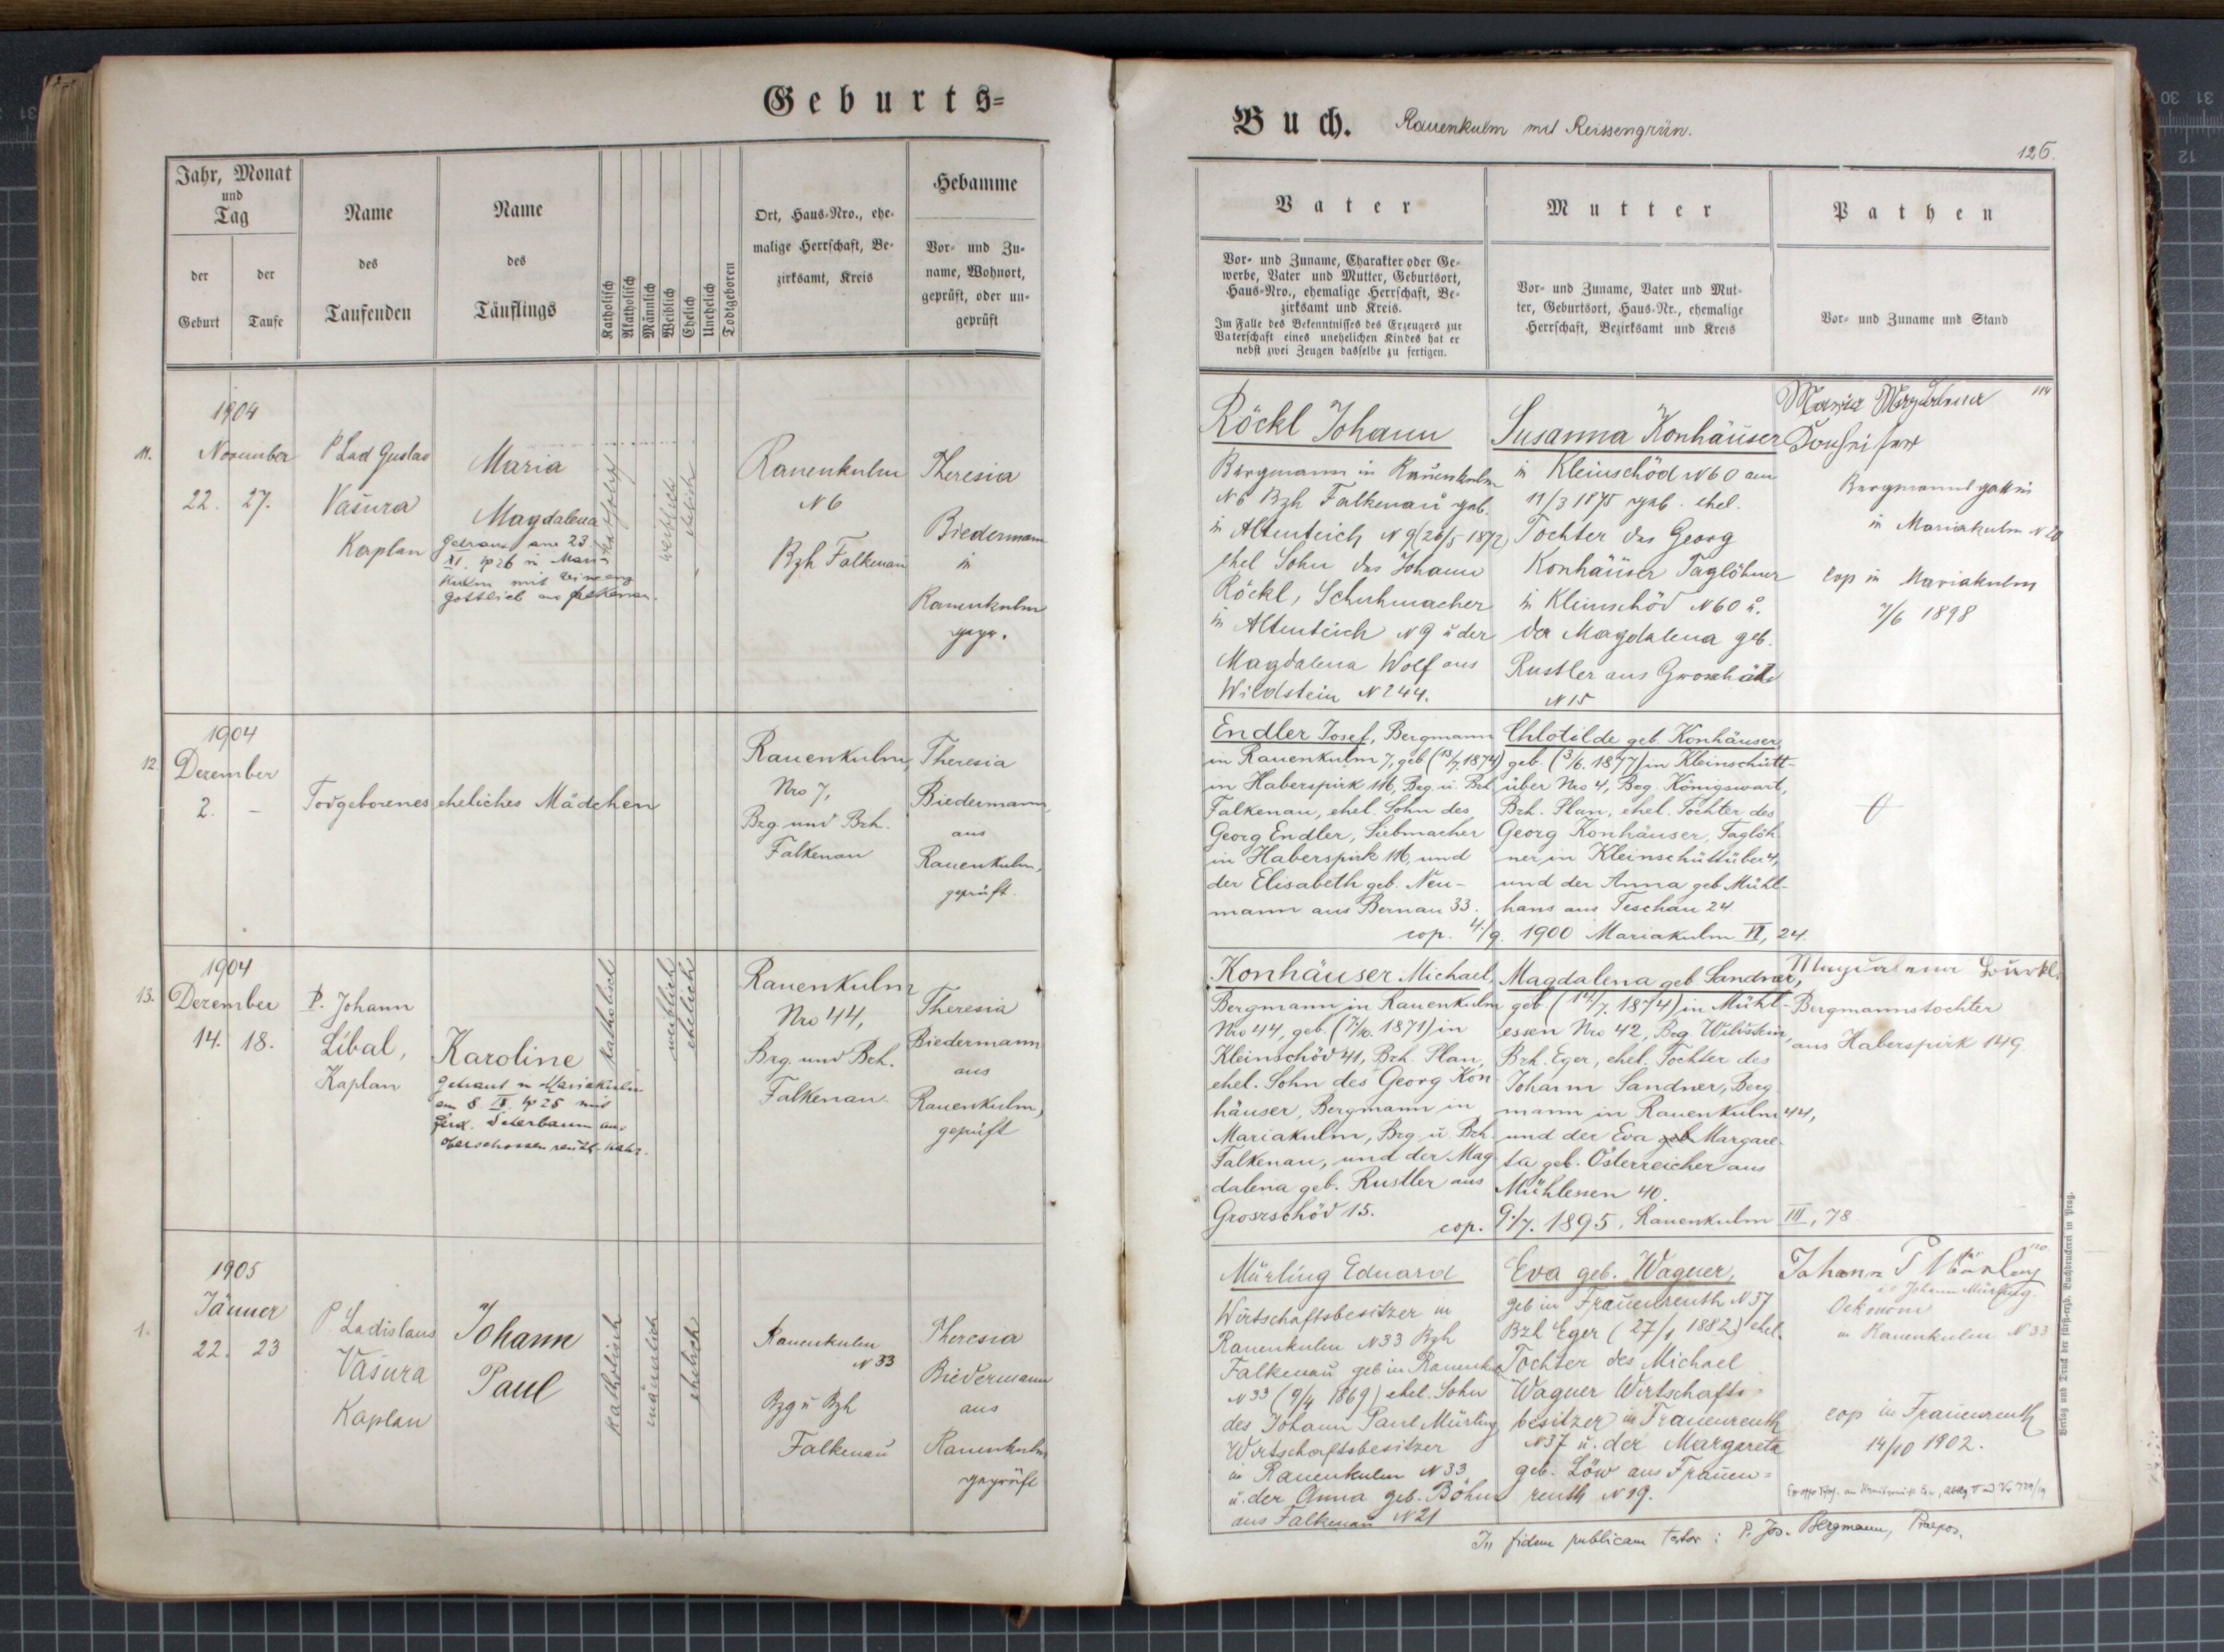 Geburts=
Jahr, Monat
und
Tag
der
Geburt
der
Taufe
Name
des
Taufenden
Name
des
Täuflings
Katholisch
Akatholisch
Männlich
Weiblich
Ehelich
Unehelich
Todtgeboren
Ort, Haus-Nro., ehe-
malige Herrschaft, Be-
zirksamt, Kreis
Hebamme
Vor- und Zu-
name, Wohnort,
geprüft, oder un-
geprüft
11.
1904
November
22. 27.
P Lad Gustav
Vašura
Kaplan
Maria
Magdalena
Getraut am 23
XI. 1926 in Maria
Kulm mit
Gottlieb aus Falkenau.
katholisch
weiblich
ehelich
Rauenkulm
N 6
Bzh Falkenau
Theresia
Biedermann
in
Rauenkulm
gepr.
12.
1904
Dezember
2. –
Todgeborenes eheliches Mädchen
Rauenkulm,
Nro 7,
Bzg. und Bzh.
Falkenau
Theresia
Biedermann,
aus
Rauenkulm,
geprüft.
13.
1904
Dezember
14. 18.
P. Johann
Líbal,
Kaplan
Karoline
getraut in Mariakulm
am 8. II. 1925 mit
Ferd. aus
katholisch
weiblich
ehelich
Rauenkulm
Nro 44,
Bzg. und Bzh.
Falkenau
Theresia
Biedermann
aus
Rauenkulm,
geprüft
1.
1905
Jänner
22. 23
P. Ladislaus
Vašura
Kaplan
Johann
Paul
katholisch
männlich
ehelich
Rauenkulm
N 33
Bzg u Bzh
Falkenau
Theresia
Biedermann
aus
Rauenkulm
geprüft
Buch. Rauenkulm mit Reissengrün.
126.
Vater
Vor- und Zuname, Charakter oder Ge-
werbe, Vater und Mutter, Geburtsort,
Haus-Nro., ehemalige Herrschaft, Be-
zirksamt und Kreis.
Im Falle des Bekenntnisses des Erzeugers zur
Vaterschaft eines unehelichen Kindes hat er
nebst zwei Zeugen dasselbe zu fertigen.
Mutter
Vor- und Zuname, Vater und Mut-
ter, Geburtsort, Haus-Nr., ehemalige
Herrschaft, Bezirksamt und Kreis
Pathen
Vor- und Zuname und Stand
Röckl Johann
Bergmann in Rauenkulm
N 6 Bzh Falkenau geb.
in Altenteich N 9 (26/5 1872)
ehel Sohn des Johann
Röckl, Schuhmacher
in Altenteich N 9 u der
Magdalena Wolf aus
Wildstein N 244.
Susanna Konhäuser
in Kleinschöd N 60 am
11/3 1875 geb. ehel.
Tochter des Georg
Konhäuser Taglöhner
in Kleinschöd N 60 u.
der Magdalena geb.
Rustler aus Groschöd
N 15
Maria Magdalena
Bergmanns gattin
in Mariakulm N 20
Cop in Mariakulm
7/6 1898
Endler Josef, Bergmann
in Rauenkulm 7, geb (13/7. 1874)
in Haberspirk 116, Bzg. u. Bzh.
Falkenau, ehel. Sohn des
Georg Endler, Siebmacher
in Haberspirk 116, und
der Elisabeth geb. Neu-
mann aus Bernau 33.
Chlotilde geb. Konhäuser,
geb. (3/6. 1877) in Kleinschütt-
über Nro 4, Bzg. Königswart,
Bzh. Plan, ehel. Tochter des
Georg Konhäuser, Taglöh-
ner in Kleinschüttüber 4,
und der Anna geb. Mühl-
hans aus Teschau 24.
cop. 4./9. 1900 Mariakulm VI, 24.
Konhäuser Michael,
Bergmann in Rauenkulm
Nro 44, geb. (7/10. 1871) in
Kleinschöd 41, Bzh. Plan,
ehel. Sohn des Georg Kon-
häuser, Bergmann in
Mariakulm, Bzg u. Bzh.
Falkenau, und der Mag-
dalena geb. Rustler aus
Grosschöd 15.
Magdalena geb Sandner,
geb (14/7. 1874) in Mühl-
essen Nro 42, Bzg. Wildstein,
Bzh. Eger, ehel. Tochter des
Johann Sandner, Berg-
mann in Rauenkulm 44,
und der Eva geb Margare-
ta geb. Österreicher aus
Mühlessen 40.
cop. 9./7. 1895, Rauenkulm III, 78
Magdalena
Bergmannstochter
aus Haberspirk 149
Mürling Eduard
Wirtschaftsbesitzer in
Rauenkulm N 33 Bzh
Falkenau geb in Rauenkulm
N 33 (9/4 1869) ehel. Sohn
des Johann Paul Mürling
Wirtschaftsbesitzer
in Rauenkulm N 33
u. der Anna geb. Böhm
aus Falkenau N 21
Eva geb. Wagner,
geb in Frauenreuth N 37
Bzh Eger (27/1 1882) ehel.
Tochter des Michael
Wagner Wirtschafts-
besitzer in Frauenreuth
N 37 u. der Margareta
geb. Löw aus Frauen=
reuth N 19.
Johann P Mürling
i.e Johann Mürling.
Oekonom
in Rauenkulm N 33
cop in Frauenreuth
14/10 1902.
In fidem publicam testor: P. Jos. Bergmann, Praepos.
Verlag und Druck der fürst-erzb. Buchdruckerei in Prag.